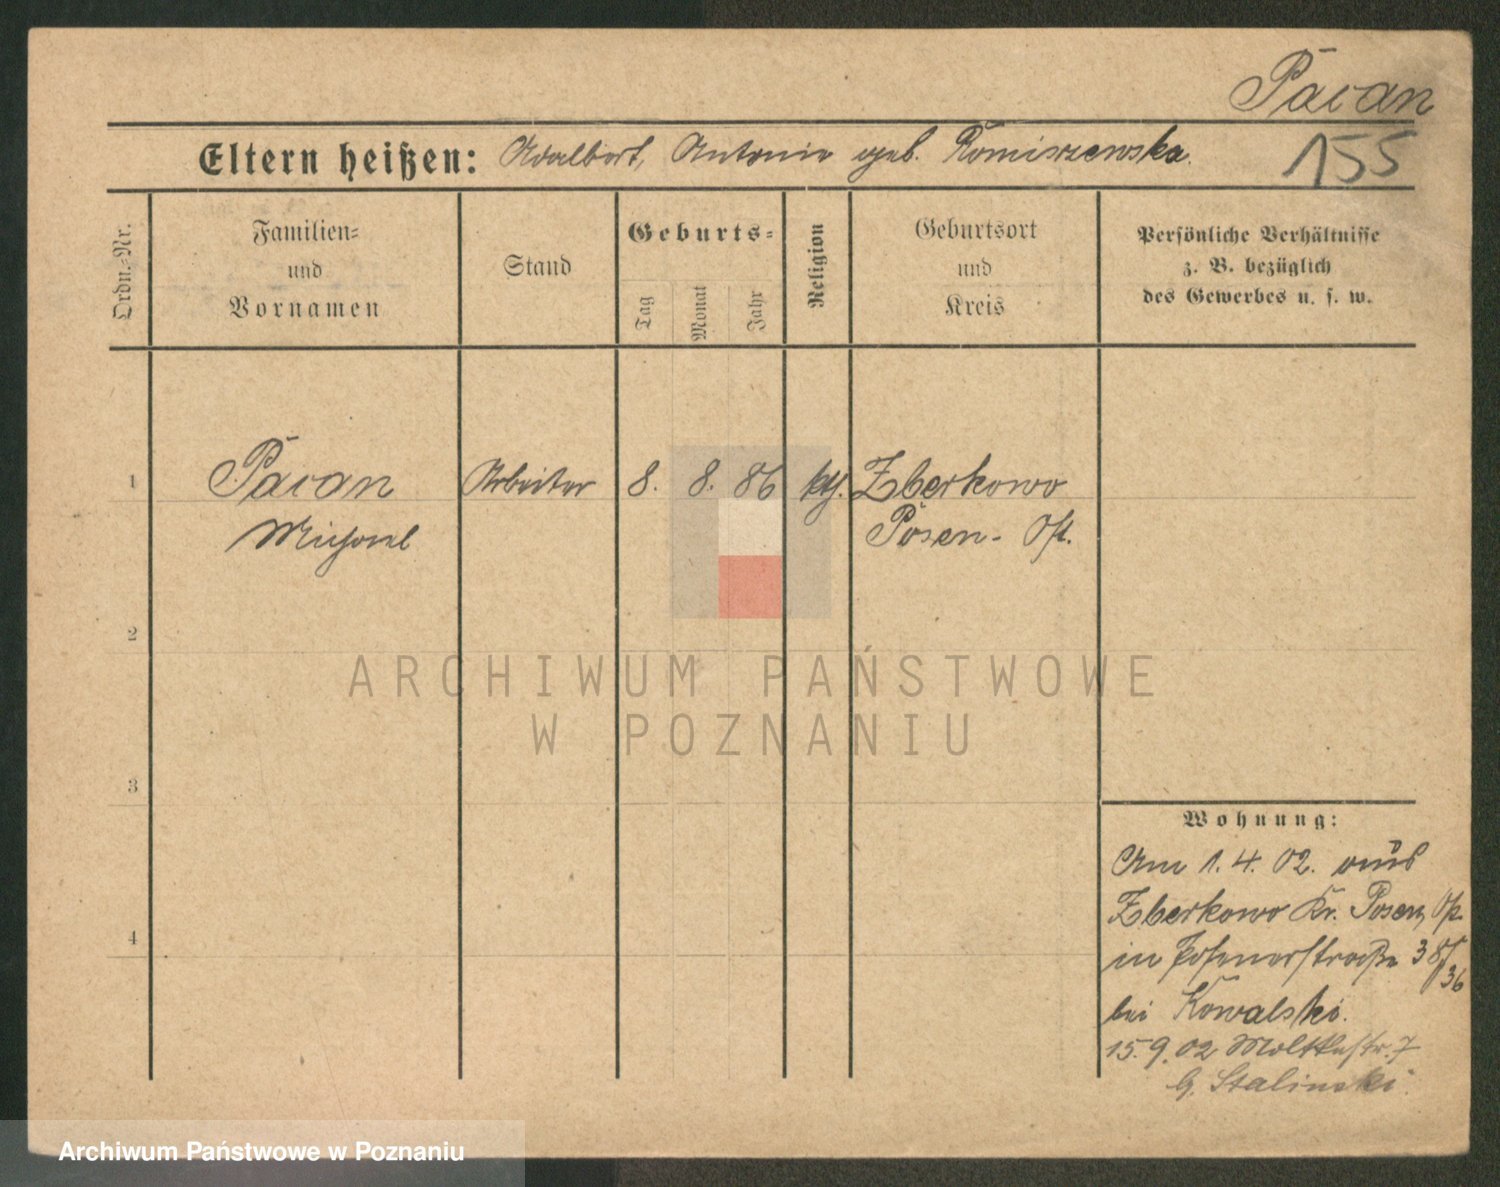 Pacan
155
Eltern heißen: Adalbert, Antonie geb. Romiszewska.
Ordn.-Nr.
Familien-
und
Vornamen
Stand
Geburts-
Tag
Monat
Jahr
Religion
Geburtsort
und
Kreis
Persönliche Verhältnisse
z. B. bezüglich
des Gewerbes u. s. w.
1 Pacan Arbeiter 8. 8. 86 kth. Zberkowo
Michael Posen-Ost.
2
3
4
Wohnung:
Am 1. 4. 02. aus
Zberkowo Kr. Posen, Op.
in Posenerstraße 38/
36
bei Kowalski.
15.9.02 Moltkestr. 7
b. Stalinski.
ARCHIWUM PAŃSTWOWE
W POZNANIU
Archiwum Państwowe w Poznaniu